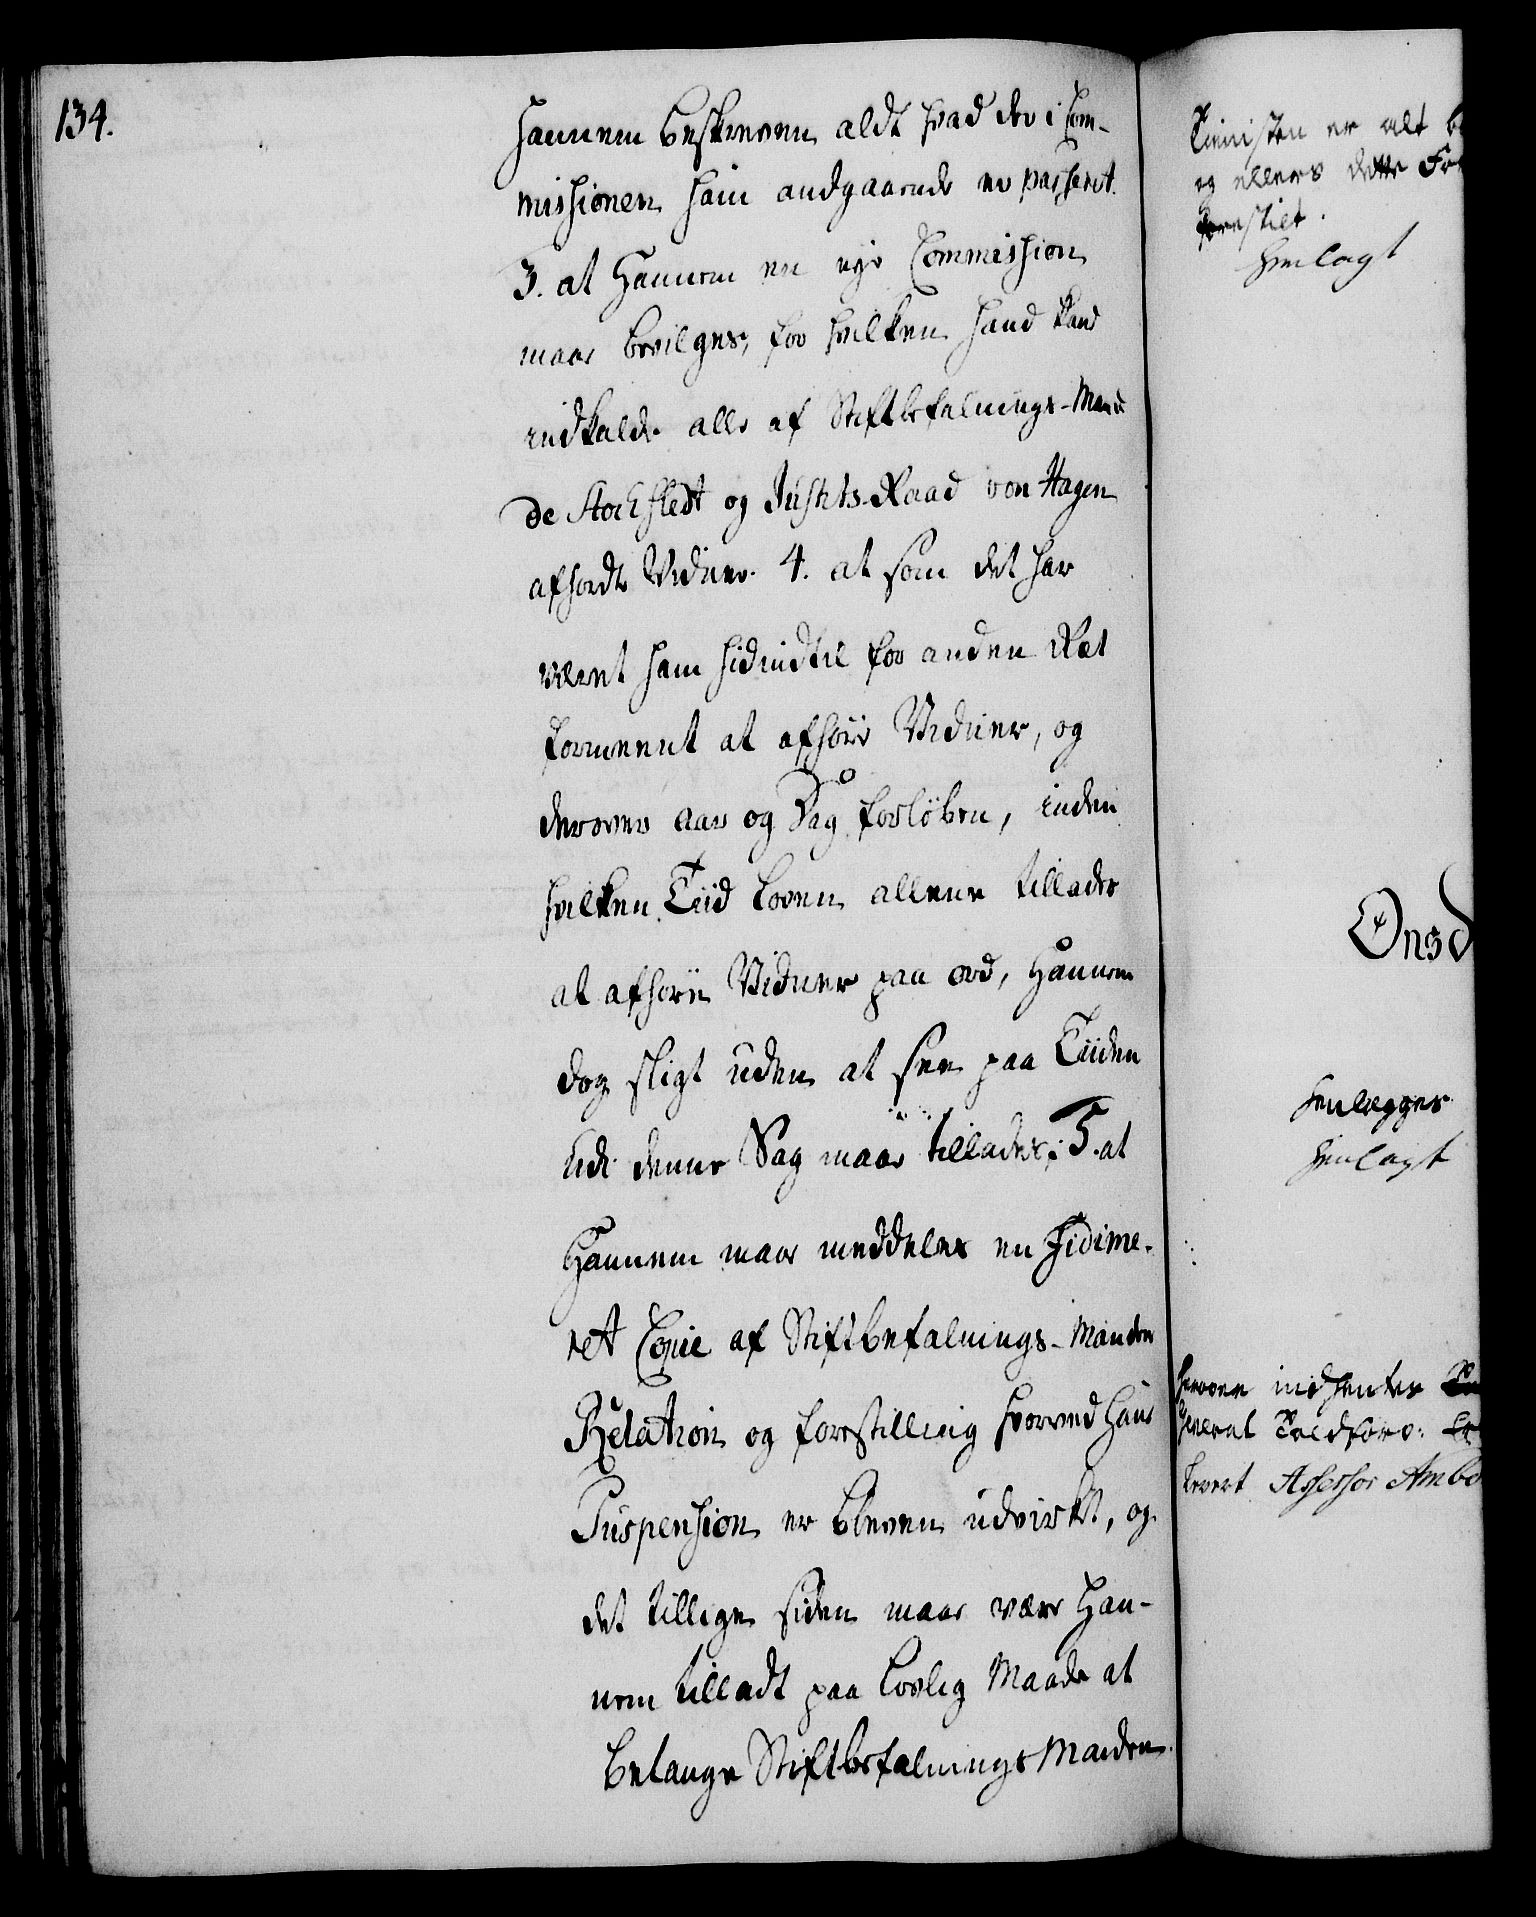 134.
hannem beskreven aldt hvad der i Com-
missionen ham andgaaende er passeret.
3. at Hannem en nye Commission
maae bevilges, for hvilken hand kand
indkalde alle af Stiftbefalnings-Mand
de Stockfledt og Justits-Raad von Hagen
afhørdte Vidner. 4. at som det har
været ham hidindtil for anden Ræt
formeent at afhøre Vidner, og
derover Aar og Dag forløben, inden
hvilken Tiid Loven allene tillader
at afhøre Vidner paa ord, Hannem
dog sligt uden at see paa Tiiden
udi denne Sag maae tillades; 5. at
Hannem maae meddeles en Fidime-
ret Copie af Stiftbefalnings-Manden
Relation og forestilling hvorved hans
Suspension er bleven udvirket, og
det tillige siden maae være Han-
nem tilladt paa lovlig Maade at
belange Stiftbefalnings Manden.
er alt
og ellers dette
forestilt.
henlagt
Onsd
henlægges
henlagt
indhentes
General
levert Assessor Ambe